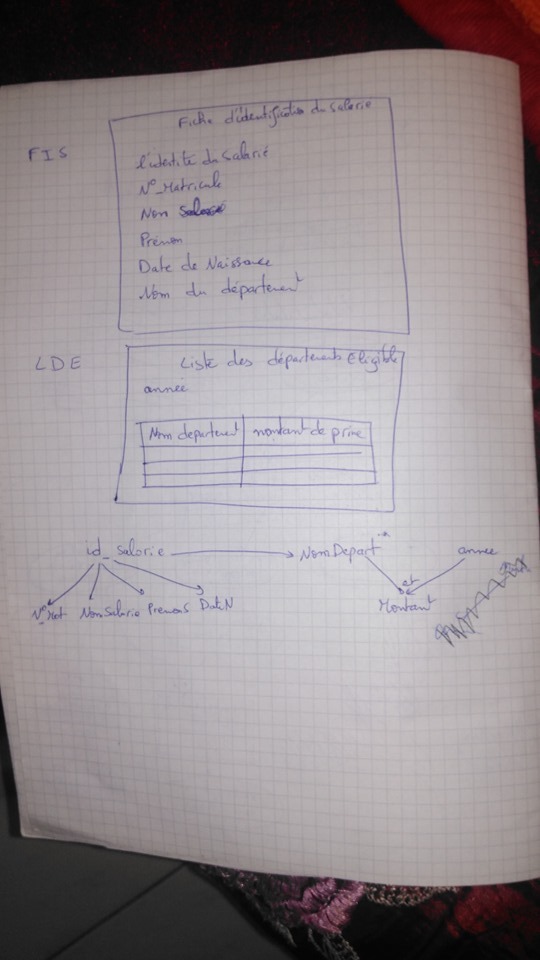 Fiche d'identification du Salarié
FIS
l'identité du Salarié
N°_Matricule
Nom
Prénom
Date de Naissance
Nom du département
LDE
Liste des départements Eligible
année
Nom departement montant de prime
id_salarie NomDepart année
et
N°Mat NomSalarie Prenoms DateN Montant